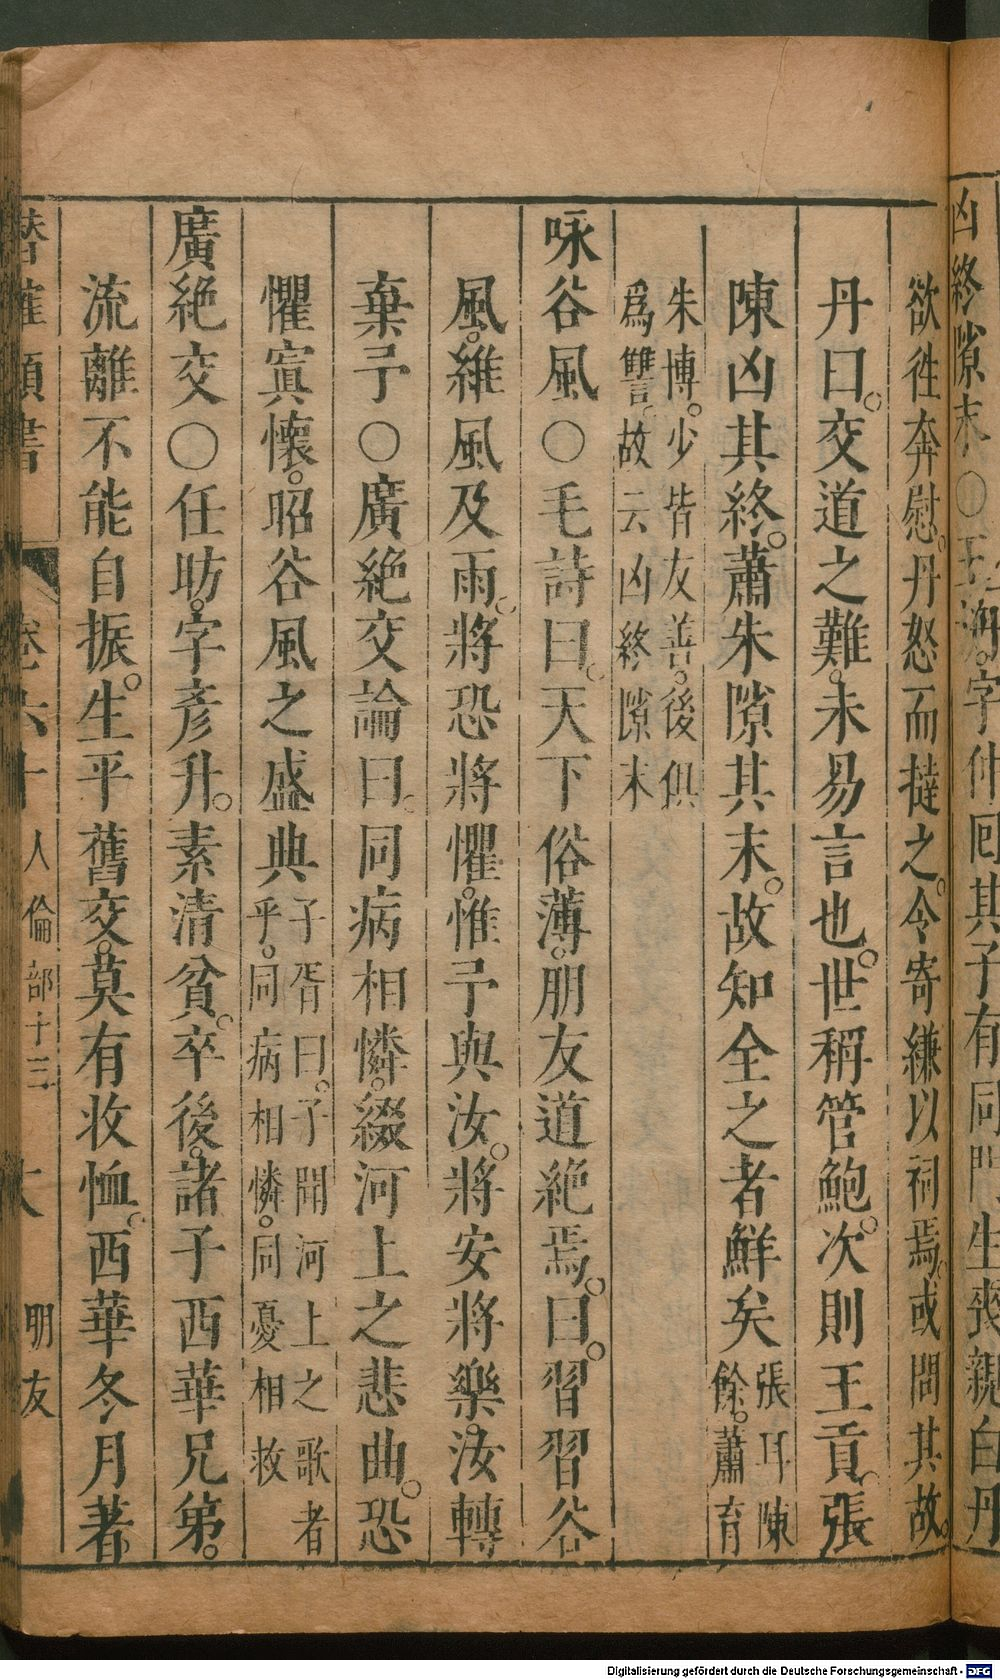 凶終隙末○王海。字仲回其子有同門生喪親白丹
欲徃奔慰。丹怒而撻之。令寄縑以祠焉。或問其故。
丹曰。交道之難。未易言也。世稱管鮑。次則王貢。張
陳凶其終。蕭朱隙其末。故知全之者鮮矣張耳陳
餘。蕭育
朱博。少皆友善。後俱
爲讐。故云凶終隙末
咏谷風○毛詩曰。天下俗薄。朋友道絶焉。曰。習習谷
風。維風及雨。將恐將懼。惟予與汝。將安將樂。汝轉
棄予○廣絶交論曰。同病相憐。綴河上之悲曲。恐
懼寘懷。昭谷風之盛典子胥曰。子聞河上之歌者
乎。同病相憐。同憂相救
廣絶交○任昉。字彥升。素清貧。卒後。諸子西華兄弟。
流離不能自振。生平舊交。莫有收恤。西華冬月著
類書 卷六十 人倫部十三 朋友
Digitalisierung gefördert durch die Deutsche Forschungsgemeinschaft - DFG